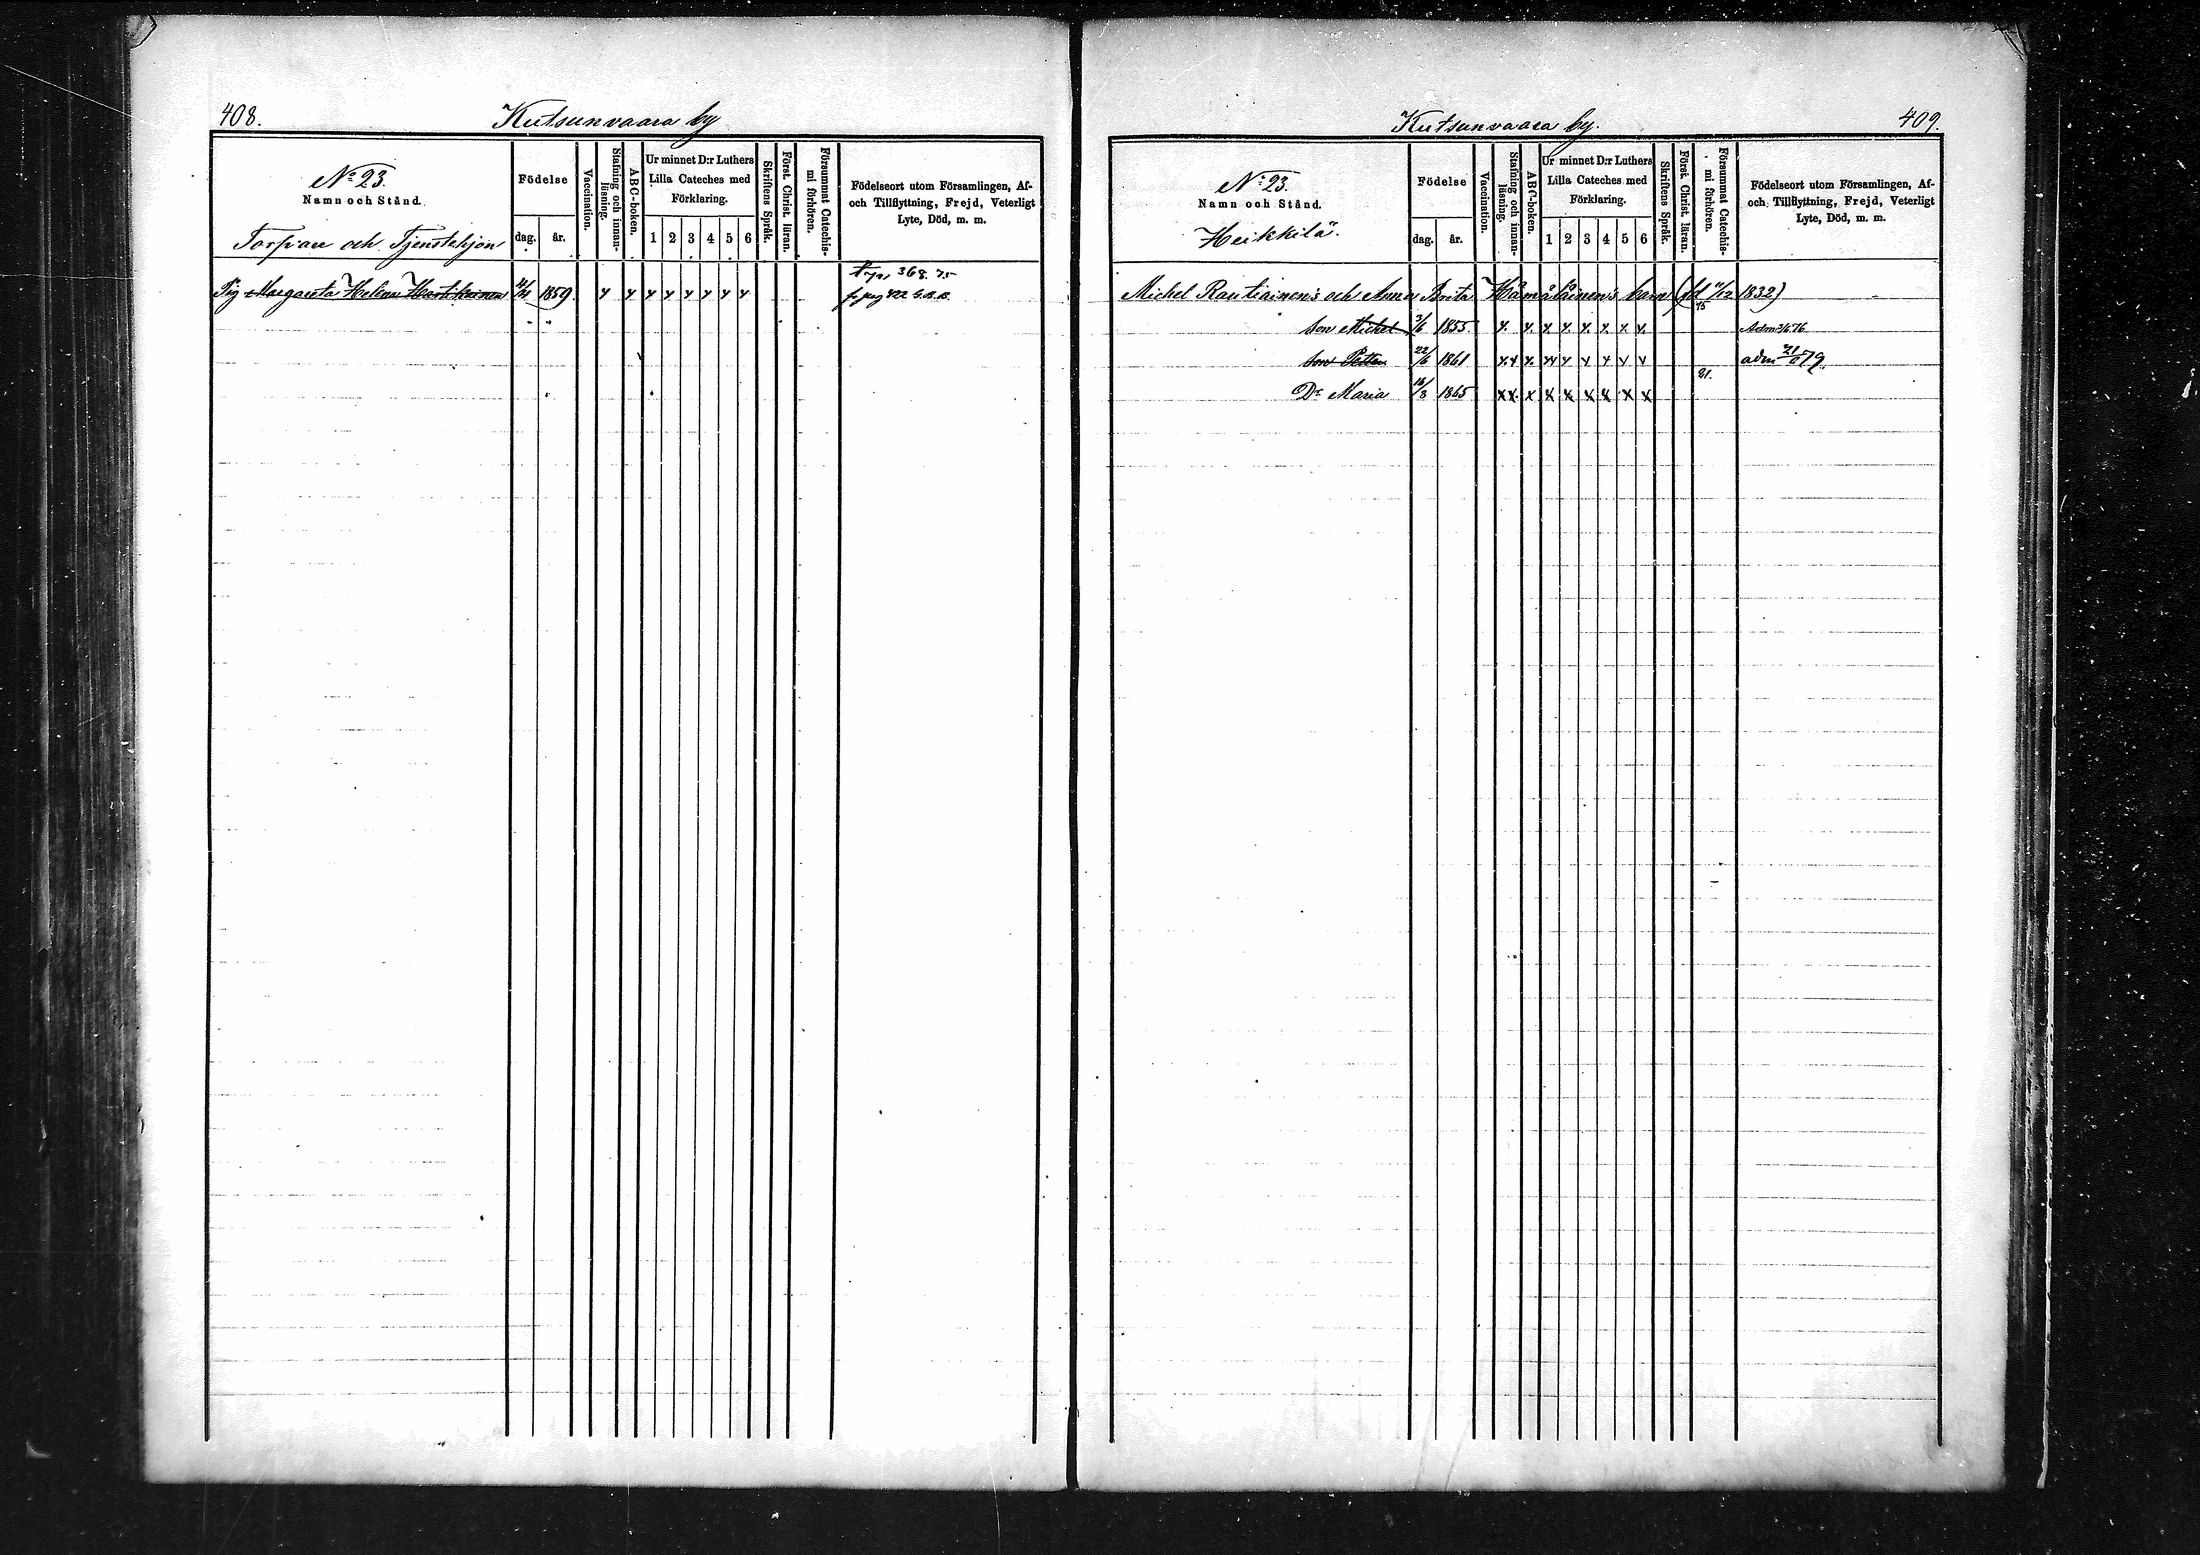 408.
Kutsunvaara by
No 23.
Namn och Stånd.
Torpare och Tjenstehjon
Födelse
dag. år.
Vaccination.
Stafning och innanläsning.
ABC-boken.
Ur minnet D:r Luthers
Lilla Cateches med
Förklaring.
1 2 3 4 5 6
Skriftens Språk.
Först. Christ. läran.
Försummat Catechismi förhören.
Födelseort utom Församlingen, Af-
och Tillflyttning, Frejd, Veterligt
Lyte, Död, m. m.
368. 75
Pig Margareta Helena Hartikainen 1859
409.
Kutsunvaara by.
No 23.
Namn och Stånd.
Heikkilä.
Födelse
dag. år.
Vaccination.
Stafning och innanläsning.
ABC-boken.
Ur minnet D:r Luthers
Lilla Cateches med
Förklaring.
1 2 3 4 5 6
Skriftens Språk.
Först. Christ. läran.
Försummat Catechismi förhören.
Födelseort utom Församlingen, Af-
och Tillflyttning, Frejd, Veterligt
Lyte, Död, m. m.
Michel Rautiainen's och Anna Brita Hämäläinen's barn (fd 11/12 1832)
75
son Michel 3/6 1855
son Petter 22/6 1861 adm 79.
81.
Dr Maria 16/3 1865